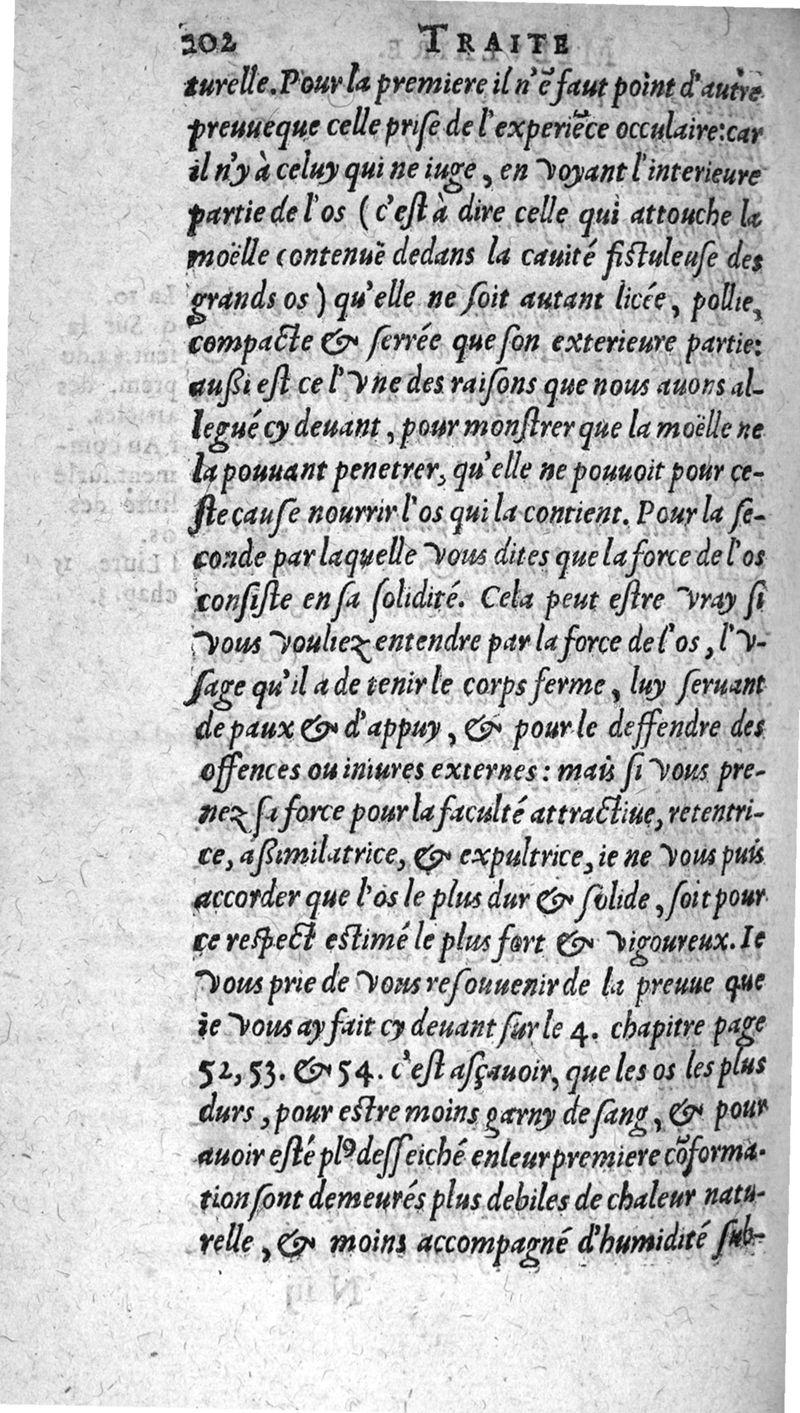 202 TRAITE
turelle. Pour la premiere il n'ē faut point d'autre
preuue que celle prise de l'experiēce occulaire: car
il n'y à celuy qui ne iuge, en voyant l'interieure
partie de l'os (c'est à dire celle qui attouche la
moëlle contenuë dedans la cauité fistuleuse des
grands os) qu'elle ne soit autant licée, pollie,
compacte & serrée que son exterieure partie:
aussi est ce l'vne des raisons que nous auons al-
legué cy deuant, pour monstrer que la moëlle ne
la pouuant penetrer, qu'elle ne pouuoit pour ce-
ste cause nourrir l'os qui la contient. Pour la se-
conde par laquelle vous dites que la force de l'os
consiste en sa solidité. Cela peut estre vray si
vous vouliez entendre par la force de l'os, l'v-
sage qu'il a de tenir le corps ferme, luy seruant
de paux & d'appuy, & pour le deffendre des
offences ou iniures externes: mais si vous pre-
nez sa force pour la faculté attractiue, retentri-
ce, assimilatrice, & expultrice, ie ne vous puis
accorder que l'os le plus dur & solide, soit pour
ce respect estimé le plus fort & vigoureux. Ie
vous prie de vous resouuenir de la preuue que
ie vous ay fait cy deuant sur le 4. chapitre page
52, 53. & 54. c'est asçauoir, que les os les plus
durs, pour estre moins garny de sang, & pour
auoir esté plꝰ desseiché en leur premiere cōforma-
tion sont demeurés plus debiles de chaleur natu-
relle, & moins accompagné d'humidité sub-